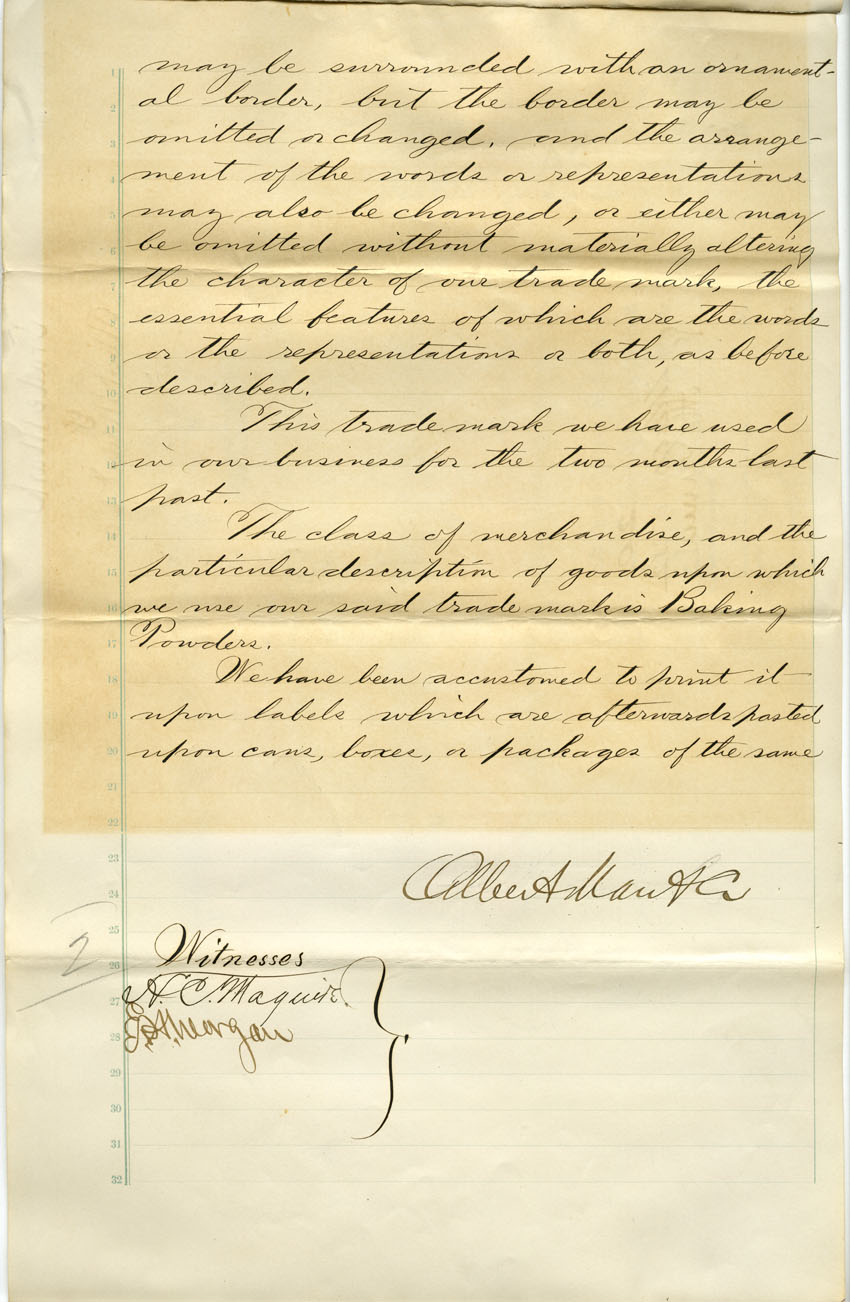 may be surrounded with an ornament-
al border, but the border may be
omitted or changed, and the arrange-
ment of the words or representations
may also be changed, or either may
be omitted without materially altering
the character of our trade mark, the
essential features of which are the words
or the representations or both, as before
described.
This trade mark we have used
in our business for the two months last
past.
The class of merchandise, and the
particular description of goods upon which
we use our said trade mark is Baking
Powders.
We have been accustomed to print it
upon labels which are afterwards pasted
upon cans, boxes, or packages of the same
Albert & Co
2
Witnesses
H. C. Maguire.
Morgan
1
2
3
4
5
6
7
8
9
10
11
12
13
14
15
16
17
18
19
20
21
22
23
24
25
26
27
28
29
30
31
32